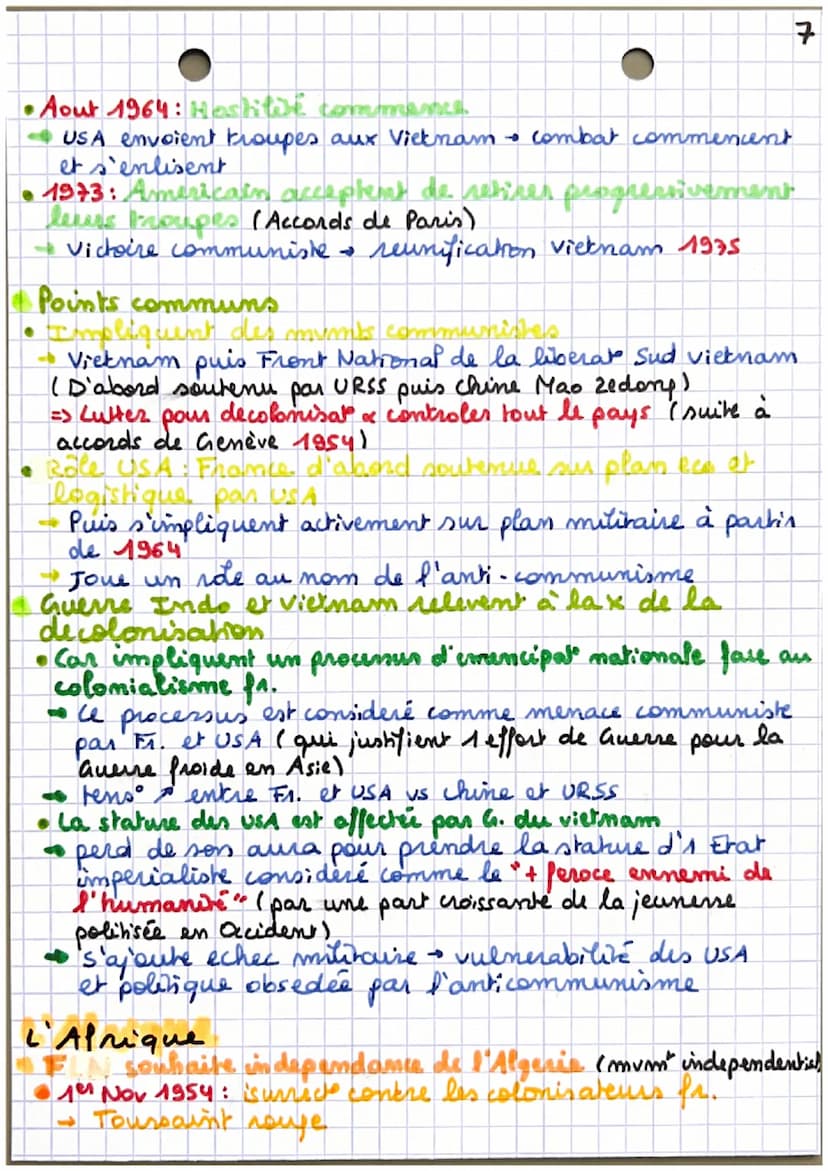 7
• Aout 1964 : Hostilité commence
→ USA envoient troupes aux Vietnam → combat commencent
et s'enlisent
• 1973 : Americain acceptent de retirer progressivement
leurs troupes (Accords de Paris)
→ Victoire communiste → reunification Vietnam 1975
Points communs
• Impliquent des mvmts communistes
→ Vietnam puis Front National de la liberat° Sud vietnam
(D'abord soutenu par URSS puis chine Mao Zedong)
=> Lutter pour decolonisat° & controler tout le pays (suite à
accords de Genève 1954)
• Rôle USA : France d'abord soutenue sur plan eco et
logistique par USA
→ Puis s'impliquent activement sur plan militaire à partir
de 1964
→ Joue un rôle au nom de l'anti-communisme
Guerre Indo et Vietnam relevent à la x de la
decolonisation
• Car impliquent un processus d'emencipat° nationale face au
colonialisme fr.
→ Ce processus est consideré comme menace communiste
par Fr. et USA (qui justifient 1 effort de Guerre pour la
Guerre froide en Asie)
→ tens° ↗ entre Fr. et USA vs chine et URSS
• La stature des USA est affectée par G. du vietnam
→ perd de son aura pour prendre la stature d'1 Etat
imperialiste consideré comme le "+ feroce ennemi de
l'humanité" (par une part croissante de la jeunesse
politisée en Occident)
→ s'ajoute echec militaire → vulnerabilité des USA
et politique obsedée par l'anticommunisme
L'Afrique
• FLN souhaite independance de l'Algerie (mvmt independentiel
• 1er Nov 1954 : isurrect° contre les colonisateurs fr.
→ Toussaint rouge